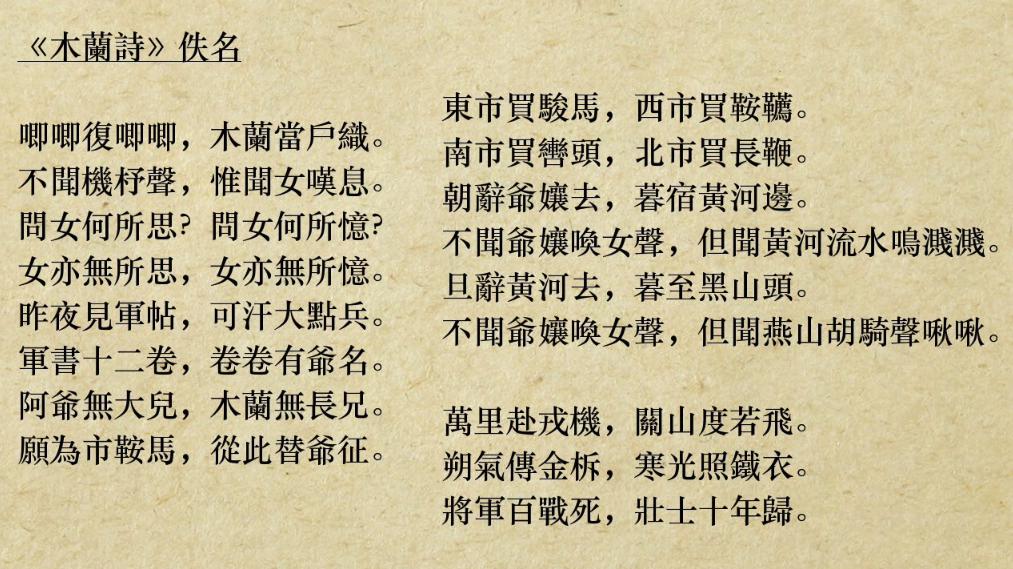 《木蘭詩》佚名
唧唧復唧唧，木蘭當戶織。
不聞機杼聲，惟聞女嘆息。
問女何所思？問女何所憶？
女亦無所思，女亦無所憶。
昨夜見軍帖，可汗大點兵。
軍書十二卷，卷卷有爺名。
阿爺無大兒，木蘭無長兄。
願為市鞍馬，從此替爺征。
東市買駿馬，西市買鞍韉。
南市買轡頭，北市買長鞭。
朝辭爺孃去，暮宿黃河邊。
不聞爺孃喚女聲，但聞黃河流水鳴濺濺。
旦辭黃河去，暮至黑山頭。
不聞爺孃喚女聲，但聞燕山胡騎聲啾啾。
萬里赴戎機，關山度若飛。
朔氣傳金柝，寒光照鐵衣。
將軍百戰死，壯士十年歸。